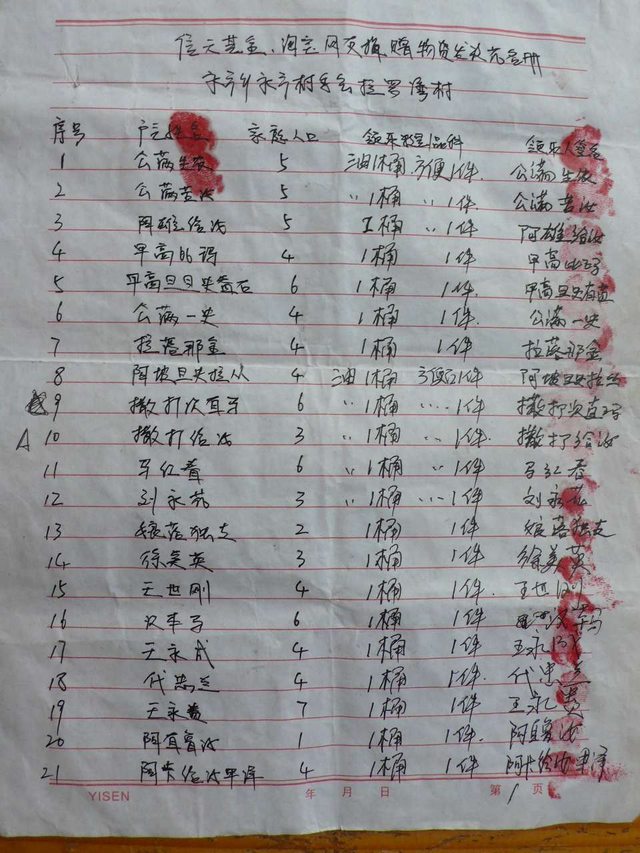 信天基金、淘宝网页捐赠物资发放花名册
永宁乡永宁村委会拉罗湾村
序号 户主姓名 家庭人口 领取物品种 领取人签名
1 公满生农 5 油1桶 方便1件 公满生农
2 公满苦汝 5 〃1桶 〃1件 公满苦汝
3 阿雄给汝 5 1桶 〃1件 阿雄给汝
4 甲高比玛 4 1桶 1件 甲高比玛
5 平高旦日史 6 1桶 1件 甲高旦史
6 公满一史 4 1桶 1件 公满一史
7 拉落那金 4 1桶 1件 拉落那金
8 阿坡旦史拉从 4 油1桶 方便1件 阿坡旦史拉
9 撒打次直 6 〃1桶 〃1件 撒打次直玛
A 10 撒打给汝 3 〃1桶 〃1件 撒打给汝
11 马红春 6 〃1桶 〃1件 马红春
12 刘永芬 3 〃1桶 〃1件 刘永
13 娘落独支 2 1桶 1件 娘落独支
14 徐美英 3 1桶 1件 徐美英
15 王世刚 4 1桶 1件 王世刚
16 6 1桶 1件
17 王永成 4 1桶 1件 王永成
18 代忠兰 4 1桶 1件 代忠兰
19 王永贵 7 1桶 1件 王永贵
20 阿直鲁汝 1 1桶 1件 阿直鲁汝
21 阿卡给汝甲泽 4 1桶 1件 阿卡给汝甲泽
YISEN 年 月 日 第 1 页